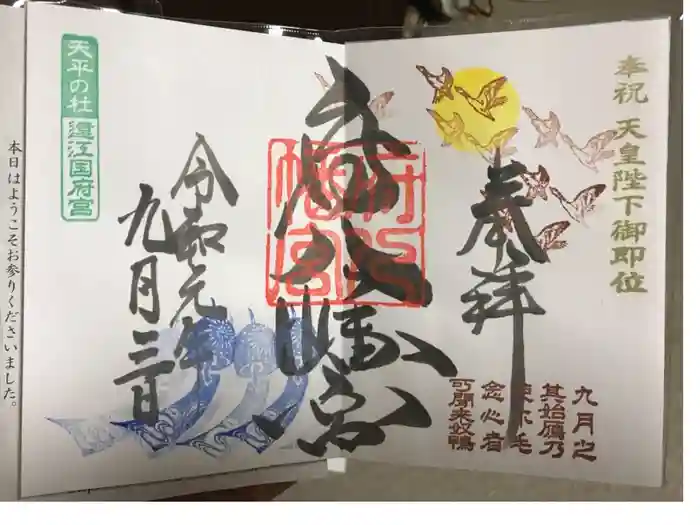 奉祝 天皇陛下御即位
奉拝
九月之
其始雁乃
使尓毛
念心者
可聞来奴鴨
府八幡宮
府八
幡宮
令和元年
九月三日
天平の社
遠江国府宮
本日はようこそお参りくださいました。